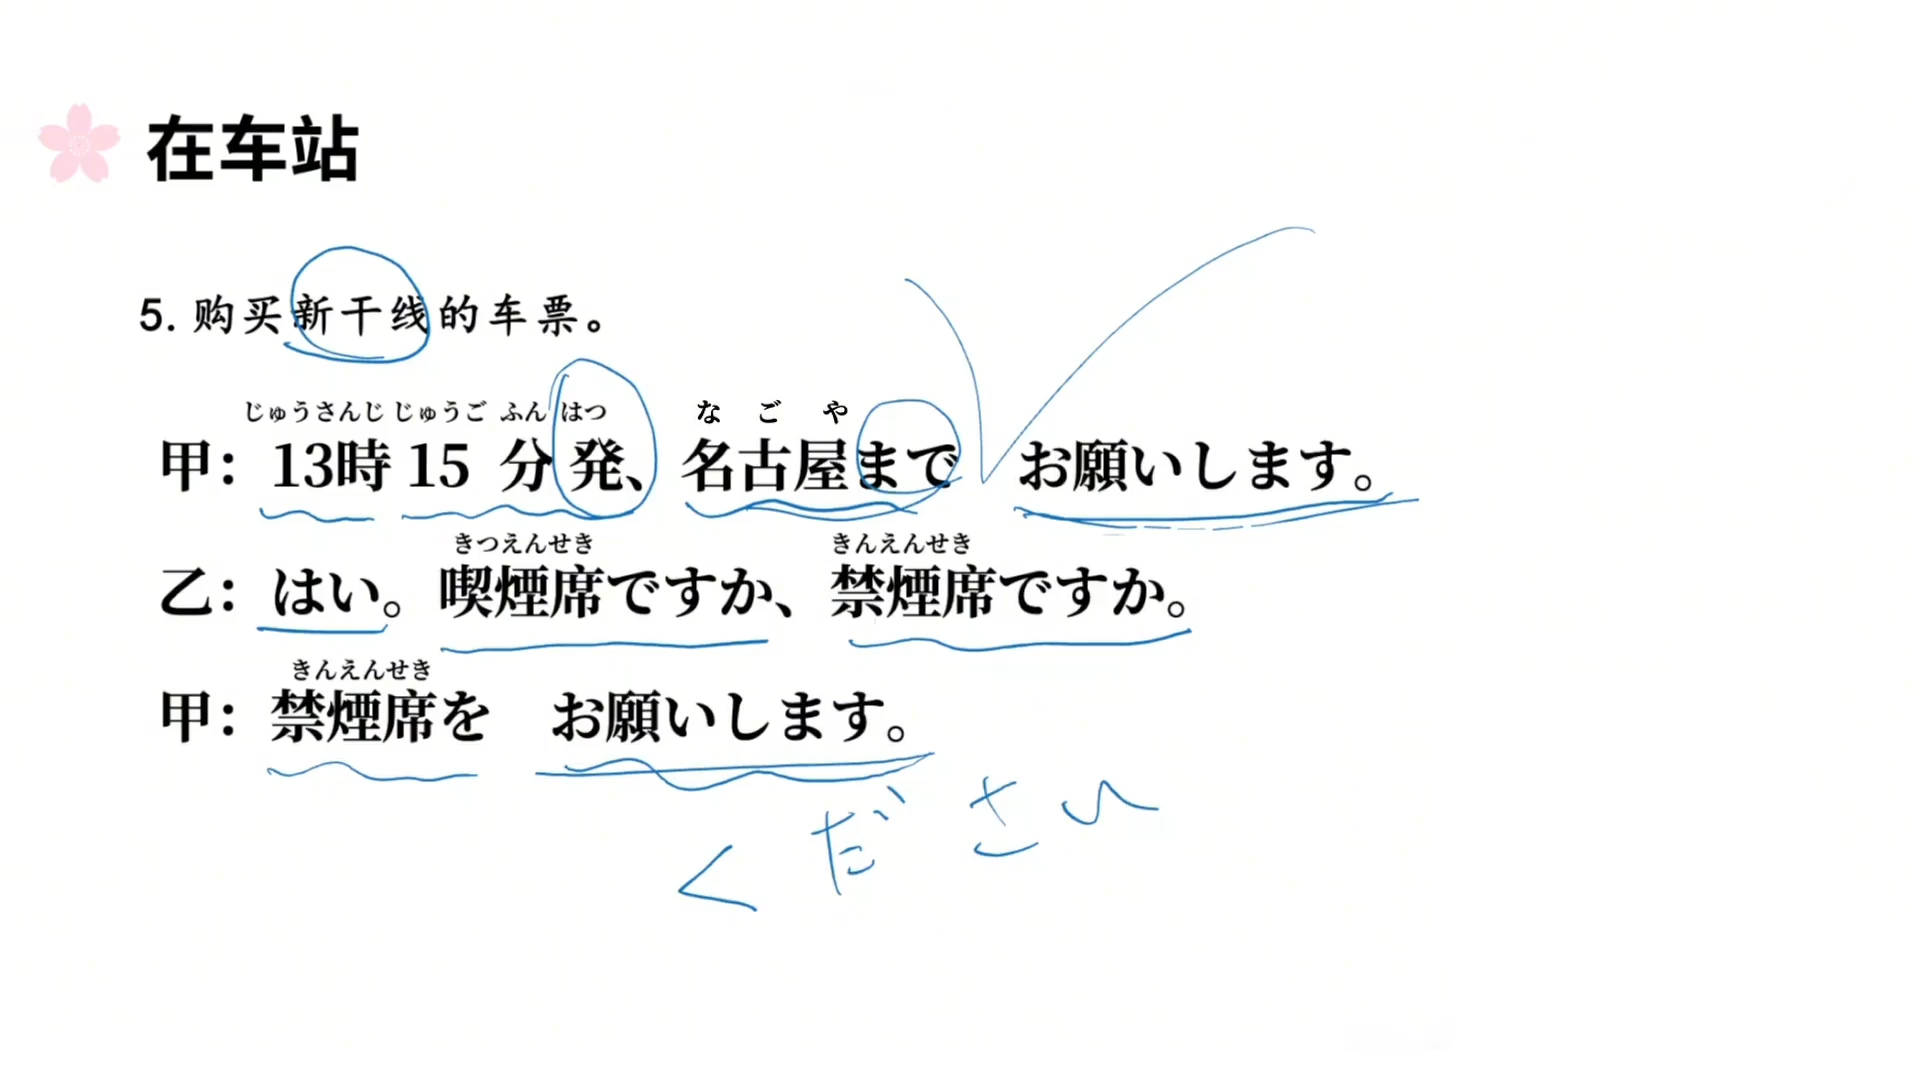 在车站
5. 购买新干线的车票。
じゅうさんじ じゅうご ふん はつ な ご や
甲：13時 15 分 発、名古屋まで お願いします。
きつえんせき きんえんせき
乙：はい。喫煙席ですか、禁煙席ですか。
きんえんせき
甲：禁煙席を お願いします。
ください